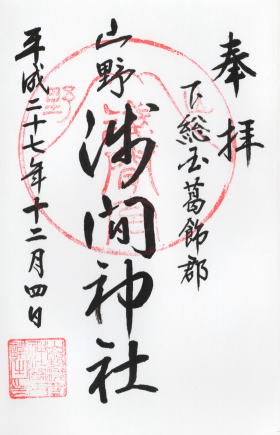 奉拝
下総国葛飾郡
山野
浅間神社
平成二十七年十二月四日